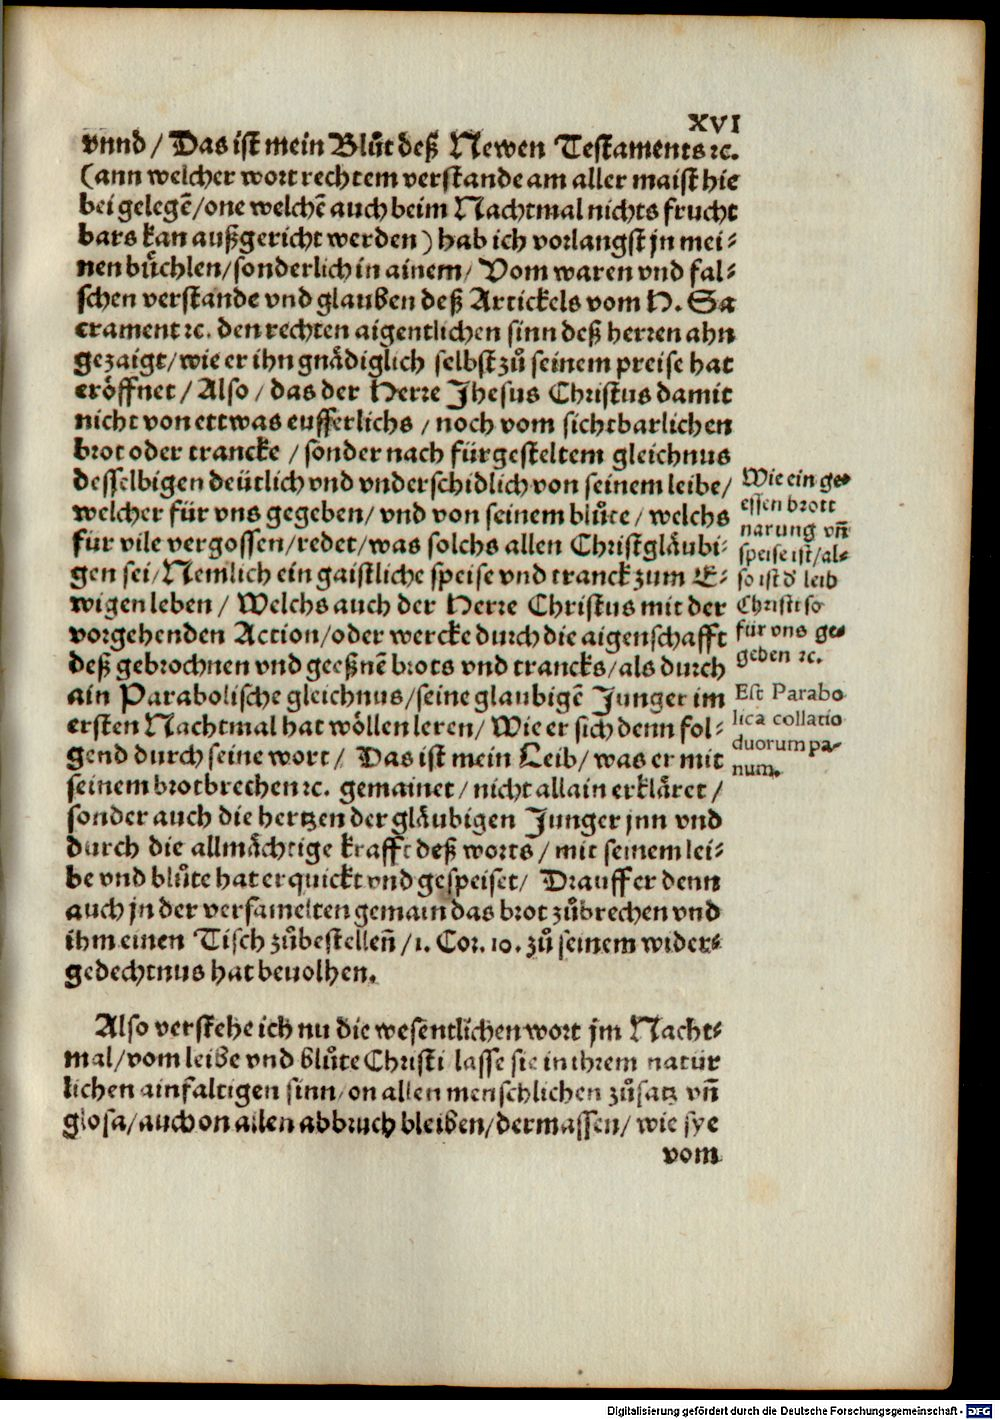 XVI
vnnd / Das ist mein Blůt deß Newen Testaments ꝛc.
(ann welcher wort rechtem verstande am aller maist hie
bei gelegẽ/one welchẽ auch beim Nachtmal nichts frucht
bars kan außgericht werden) hab ich vorlangst jn mei⸗
nen bůchlen/sonderlich in ainem/ Vom waren vnd fal⸗
schen verstande vnd glauben deß Artickels vom H. Sa
crament ꝛc. den rechten aigentlichen sinn deß herren ahn
gezaigt/wie er ihn gnådiglich selbst zů seinem preise hat
eröffnet / Also / das der Herre Jhesus Christus damit
nicht von ettwas eusserlichs / noch vom sichtbarlichen
brot oder trancke / sonder nach fürgesteltem gleichnus
desselbigen deütlich vnd vnderschidlich von seinem leibe/
welcher für vns gegeben/ vnd von seinem blůte/ welchs
für vile vergossen/redet/was solchs allen Christgläubi⸗
gen sei/Nemlich ein gaistliche speise vnd tranck zum E⸗
wigen leben/ Welchs auch der Herre Christus mit der
vorgehenden Action/oder wercke durch die aigenschafft
deß gebrochnen vnd geeßnẽ brots vnd trancks/als durch
ain Parabolische gleichnus/seine glaubigẽ Junger im
ersten Nachtmal hat wöllen leren/ Wie er sich denn fol⸗
gend durch seine wort/ Das ist mein Leib/ was er mit
seinem brotbrechen ꝛc. gemainet/ nicht allain erkläret /
sonder auch die hertzen der gläubigen Junger jnn vnd
durch die allmåchtige krafft deß worts / mit seinem lei⸗
be vnd blůte hat erquickt vnd gespeiset/ Drauff er denn
auch jn der versamelten gemain das brot zůbrechen vnd
ihm einen Tisch zůbestellen̄ /1. Cor. 10. zů seinem wider⸗
gedechtnus hat beuolhen.
Wie ein ge⸗
essen brott
narung vn̄
speise ist/al⸗
so ist d' leib
Christi so
für vns ge⸗
geben ꝛc.
Est Parabo
lica collatio
duorum pa⸗
num.
Also verstehe ich nu die wesentlichen wort jm Nacht⸗
mal/vom leibe vnd blůte Christi lasse sie in ihrem natür
lichen ainfaltigen sinn/on allen menschlichen zůsatz vn̄
glosa/auch on allen abbruch bleiben/dermassen/ wie sye
vom
Digitalisierung gefördert durch die Deutsche Forschungsgemeinschaft - DFG